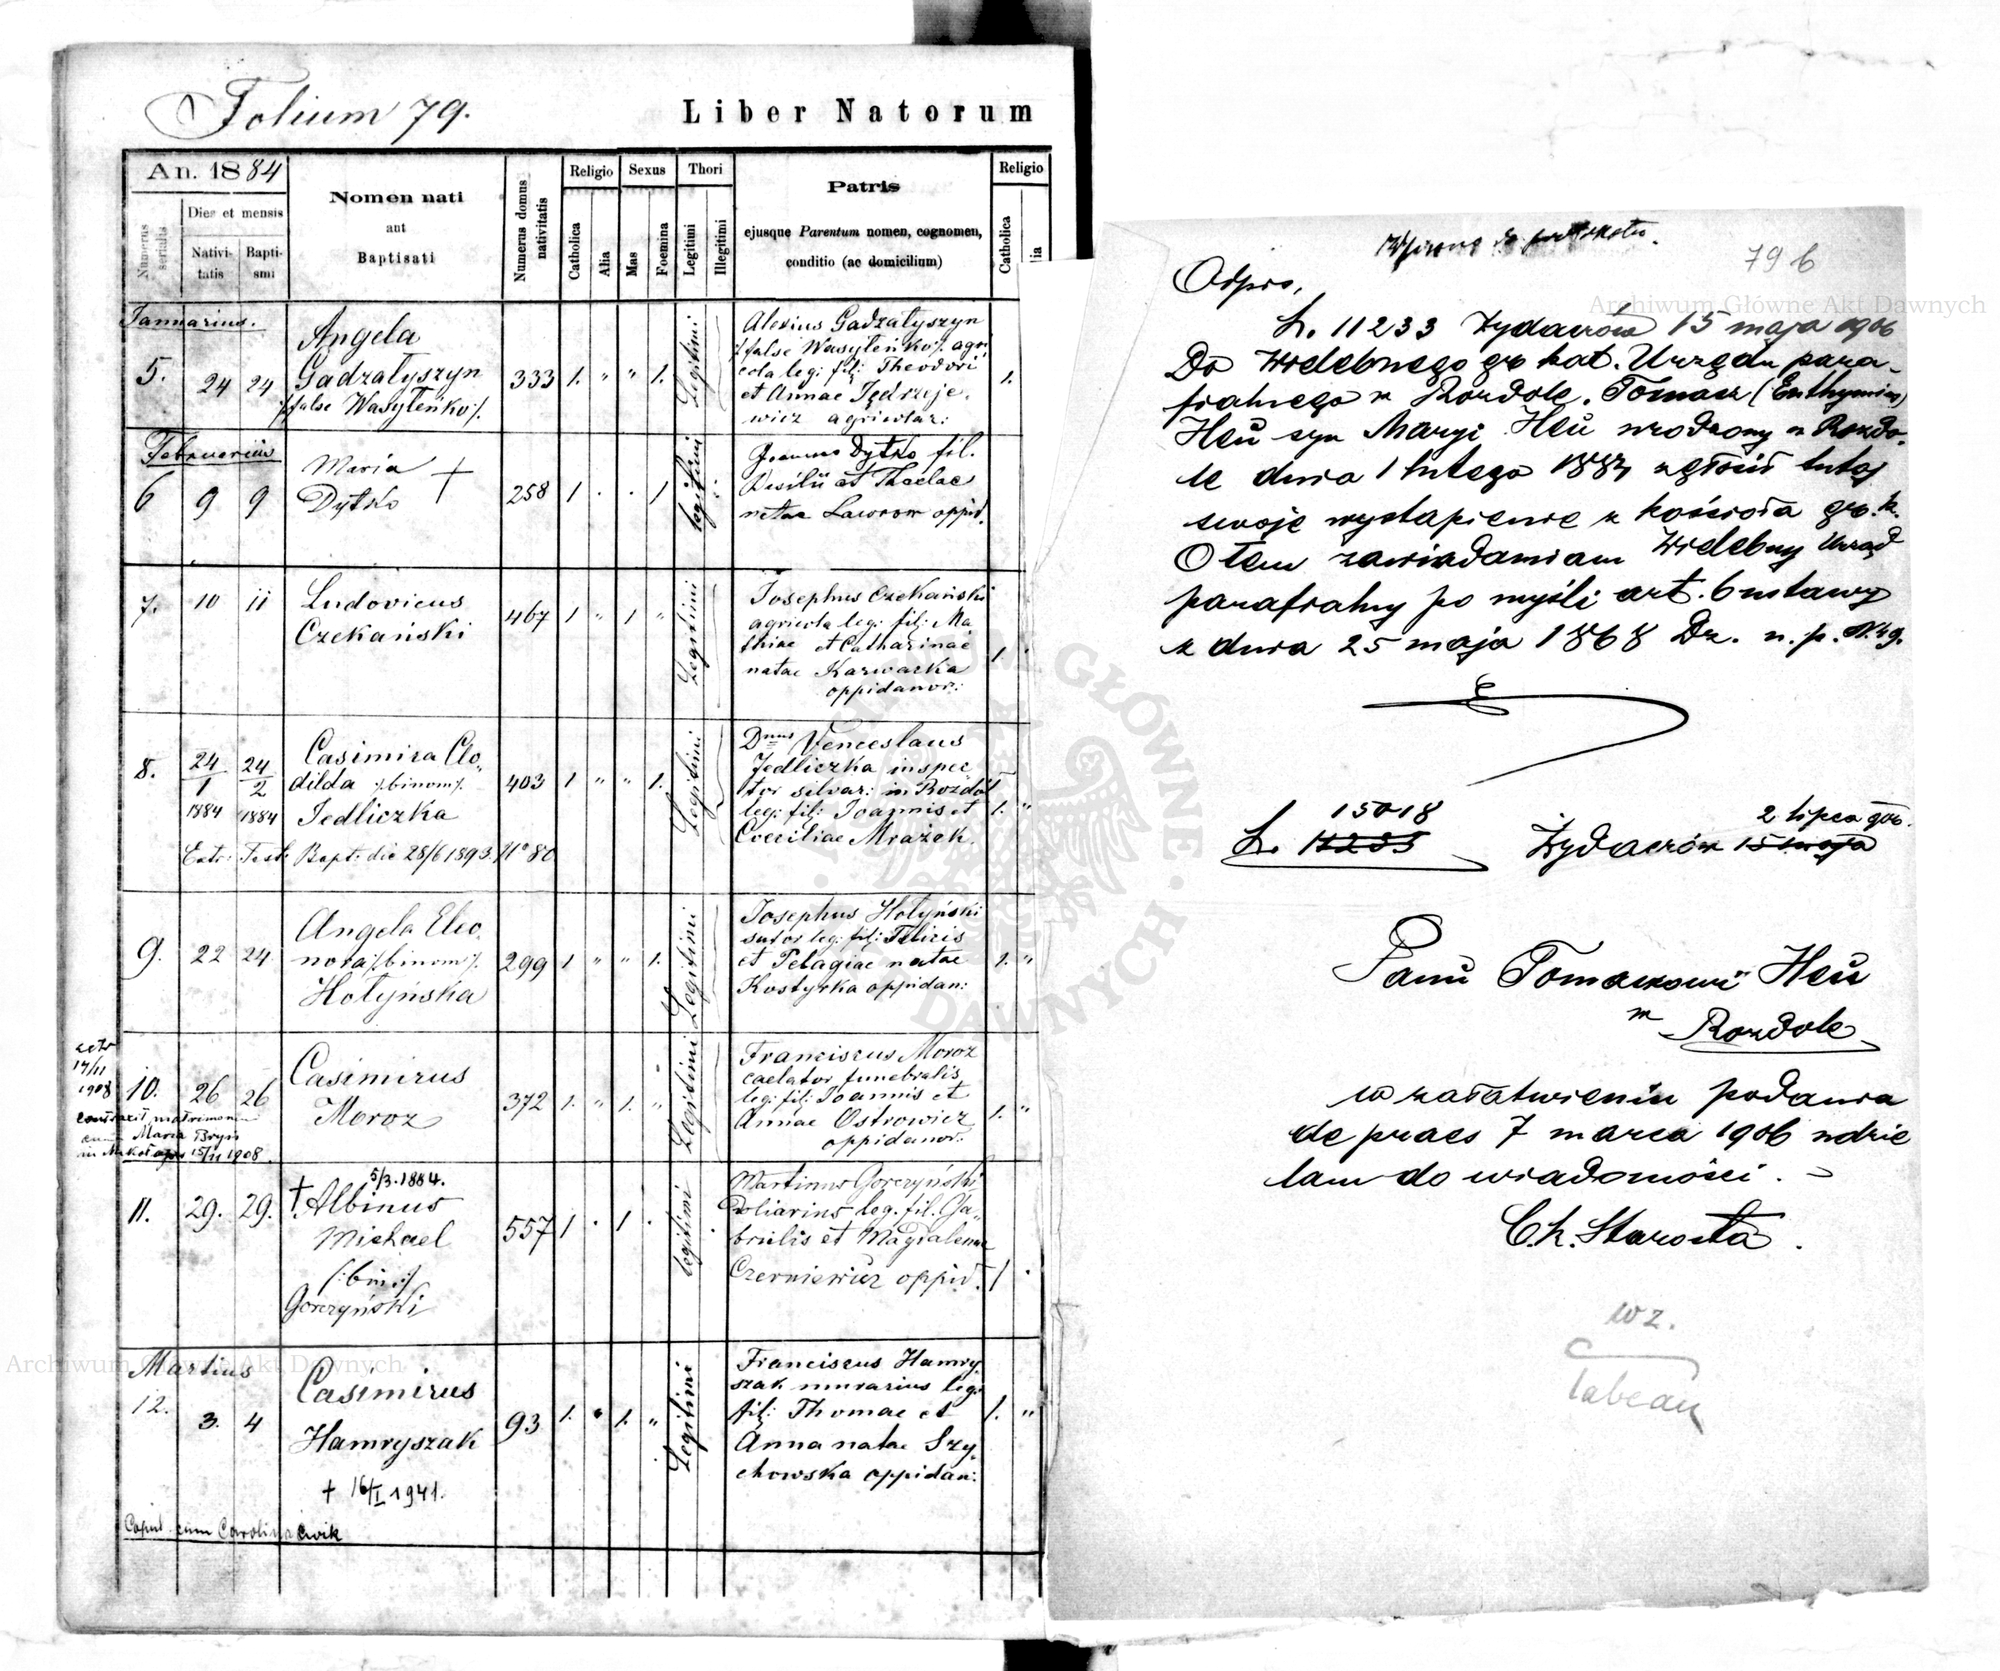 Folium 79.
Liber Natorum
An. 1884
Numerus serialis
Dies et mensis
Nativitatis
Baptismi
Nomen nati
aut
Baptisati
Numerus domus nativitatis
Religio
Catholica
Alia
Sexus
Mas
Foemina
Thori
Legitimi
Illegitimi
Patris
ejusque Parentum nomen, cognomen,
conditio (ac domicilium)
Religio
Catholica
lia
Januarius.
5. 24 24
Angela
Gadzałyszyn
/:false Wasyłeńko:/.
333 1. " " 1.
Legitimi
Alexius Gadzałyszyn
/:false Wasyłeńko:/. agri
cola leg: fil: Theodori
et Annae Jędrzeje-
wicz agricolar:
1.
Februarius
6 9 9
Maria +
Dytko
258 1 . . 1
legitimi
Joannes Dytko fil.
Basilii et Theclae
natae Laworow oppid.
7. 10 11
Ludovicus
Czekański
467 1 " 1 "
Legitimi
Josephus Czekański
agricola leg: fil: Ma
thiae et Catharinae
natae Karwacka
oppidanor:
1. "
8. 24/1 1884 24/2 1884
Casimira Clo-
dilda /:binom:/.
Jedliczka
403 1 " " 1.
Legitimi
Dnus Venceslaus
Jedliczka inspec
tor silvar: in Rozdół
leg: fil: Joannis et
Coeciliae Mrażek.
1. "
Extr: Test: Bapt: die 28/6 1893. No 80
9. 22 24
Angela Eleo-
nora /:binom:/.
Hołyńska
299 1 " " 1.
Legitimi
Josephus Hołyński
sutor leg: fil: Felicis
et Pelagiae natae
Kostyrka oppidan:
1. "
10. 26 26
Casimirus
Moroz
372 1. " 1. "
Legitimi
Franciscus Moroz
caelator funebralis
leg: fil: Joannis et
Annae Ostrowicz
oppidanor:
1. "
17/11
1908
contraxit matrimonium
cum Maria Bryń
15/11 1908.
11. 29. 29.
5/3. 1884.
† Albinus
Michael
/:bin.:/
Gorczyński
557 1 . 1 .
legitimi
Martinus Gorczyński
doliarius leg. fil. Ga-
brielis et Magdalenae
Czerniewicz oppid.
1 .
Martius
12. 3. 4
Casimirus
Hamryszak
+ 16/I 1941.
93 1. " 1. "
Legitimi
Franciscus Hamry
szak murarius leg:
fil: Thomae et
Anna natae Szy-
chowska oppidan:
1. "
Copul. cum Carolina Ćwik
79 b
Odpis.
L. 11233 Żydaczów 15 maja 1906
Do Wielebnego gr kat. Urzędu para-
fialnego w Rozdole. Tomasz (Euthymius)
Heü syn Maryi Heü urodzony w Rozdo-
le dnia 1 lutego 1884 zgłosił tutaj
swoje wystąpienie z kościoła gr. k.
O tem zawiadamiam Wielebny Urząd
parafialny po myśli art. 6 ustawy
z dnia 25 maja 1868 Dz. u. p. N. 49.
L. 15018 11233 Żydaczów 2 lipca 906. 15 maja
Panu Tomaszowi Heü
w Rozdole
w załatwieniu podania
de praes 7 marca 1906 udzie
lam do wiadomości. –
C. k. Starosta.
wz.
Tabeau
Archiwum Główne Akt Dawnych
Archiwum Główne Akt Dawnych
GŁÓWNE
DAWNYCH